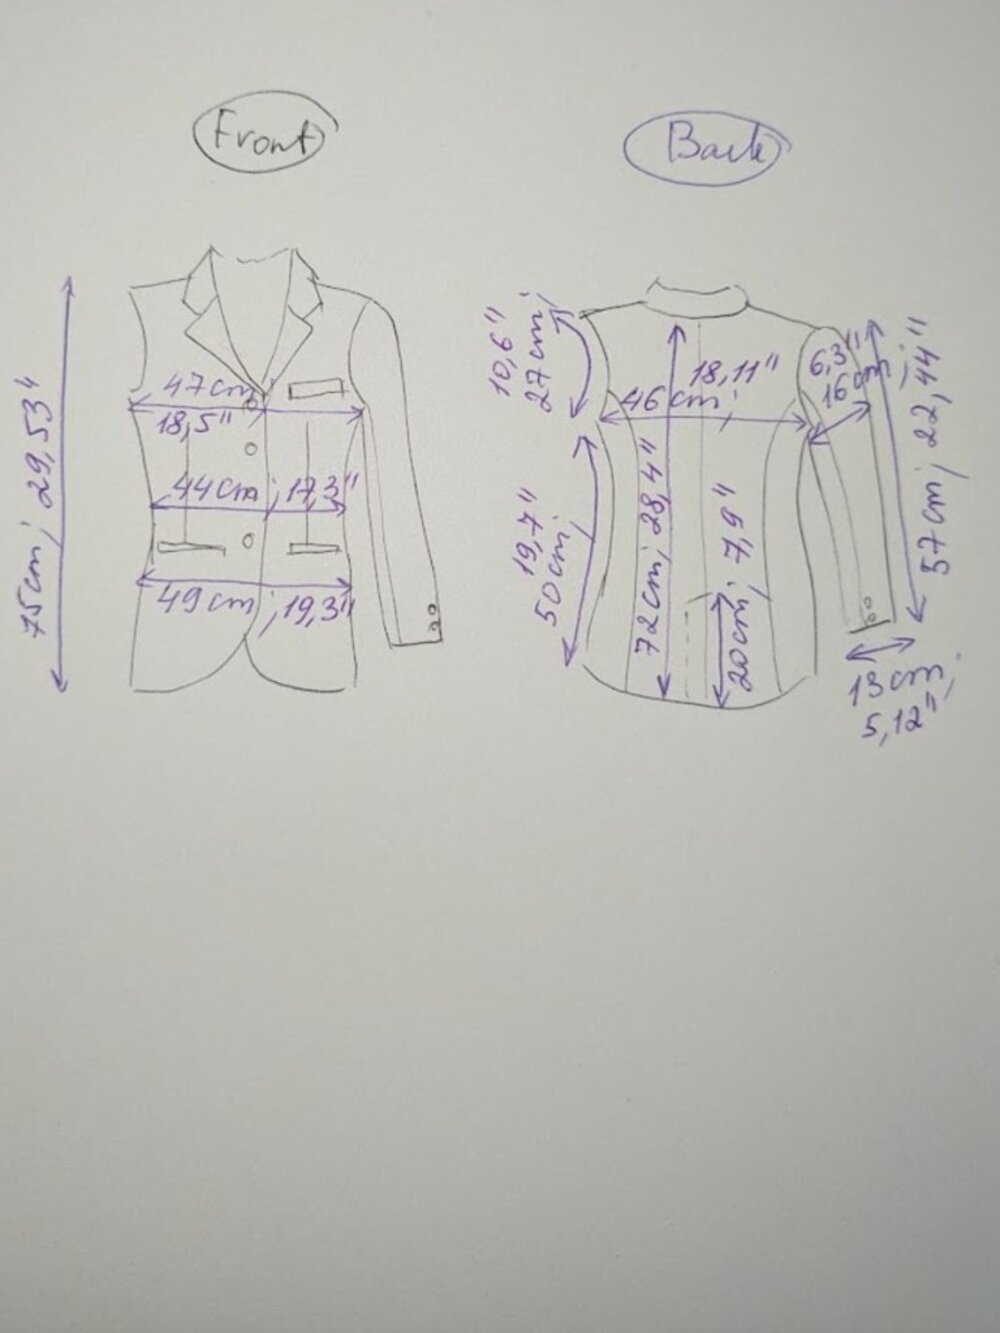 Front
75cm; 29,53"
47cm
18,5"
44cm; 17,3"
49cm; 19,3"
Back
10,6"
27cm;
18,11"
46cm;
6,3"
16cm
57cm; 22,44"
19,7"
50cm;
72cm; 28,4"
20cm; 7,9"
13cm;
5,12"